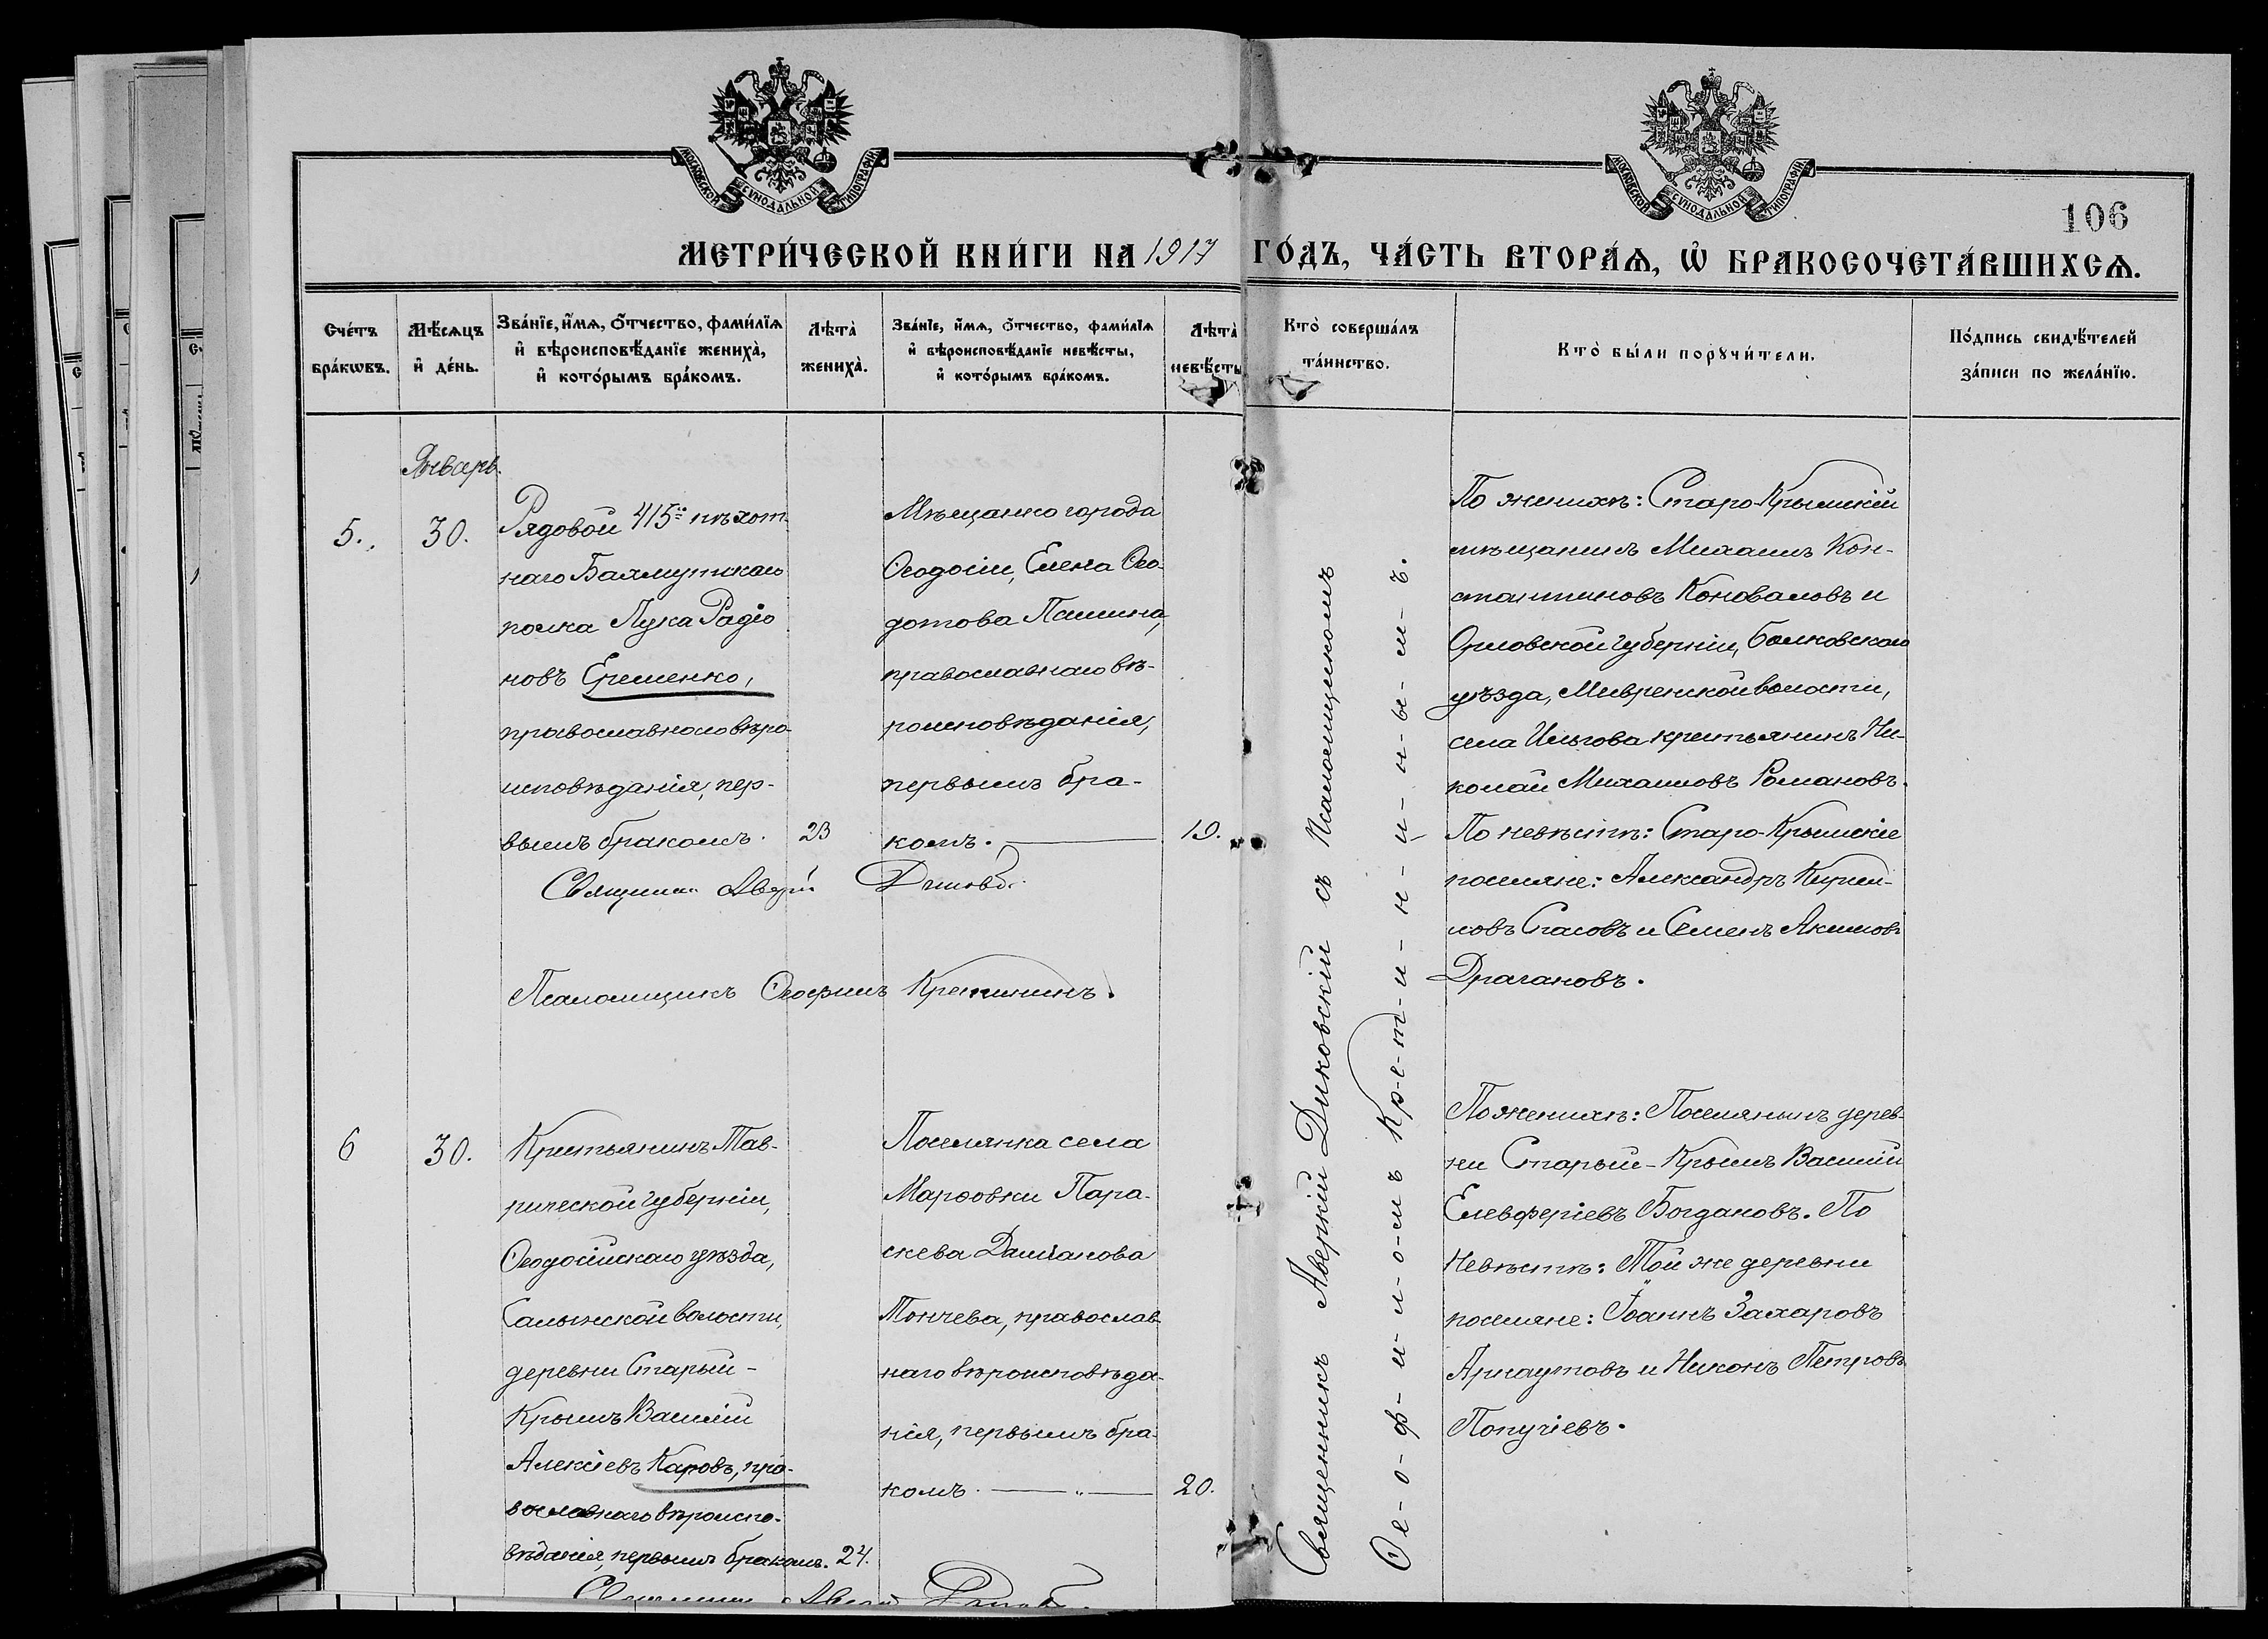 МОСКОВСКОЙ СУНОДАЛЬНОЙ ТИПОГРАФІИ
МОСКОВСКОЙ СУНОДАЛЬНОЙ ТИПОГРАФІИ
106
МЕТРИ́ЧЕСКОЙ КНИ́ГИ НА 1917 ГО́ДЪ, ЧА́СТЬ ВТОРА́Ѧ, Ѡ҆ БРАКОСОЧЕТА́ВШИХСѦ.
Сче́тъ
бра́кѡвъ.
Мѣ́сѧцъ
и҆ де́нь.
Зва́нїе, и҆́мѧ, ѻ҆́тчество, фами́лїѧ
и҆ вѣроисповѣ́данїе жениха̀,
и҆ кото́рымъ бра́комъ.
Лѣта̀
жениха̀.
Зва́нїе, и҆́мѧ, ѻ҆́тчество, фами́лїѧ
и҆ вѣроисповѣ́данїе невѣ́сты,
и҆ кото́рымъ бра́комъ.
Лѣта̀
невѣ́сты
Кто̀ соверша́лъ
та́инство.
Кто̀ бы́ли порꙋчи́тели.
По́дпись свидѣ́телей
за́писи по жела́нїю.
Январь.
5.
30.
Рядовой 415го пѣхот-
наго Бахмутскаго
полка Лука Радіо
новъ Ерешенко,
православнаго вѣро
исповѣданія, пер-
вымъ бракомъ.
23
Мѣщанка города
Ѳеодосіи, Елена Ѳео-
дотова Пашина,
православнаго вѣ-
роисповѣданія,
первымъ бра-
комъ.
19.
Священникъ Аверкій
Псаломщикъ Ѳеофилъ Кретининъ.
Священникъ Аверкій Диковскій съ Псаломщикомъ
Ѳе-о-ф-и-л-о-мъ Кр-е-т-и-н-и-н-ы-м-ъ.
По женихѣ: Старо-Крымскій
мѣщанинъ Михаилъ Кон-
стантиновъ Коноваловъ и
Орловской губерніи, Болховскаго
уѣзда, волости,
села Ильгова крестьянинъ Ни-
колай Михаиловъ Романовъ.
По невѣстѣ: Старо-Крымскіе
поселяне: Александръ Кирил-
ловъ Спасовъ и Семенъ Якимовъ
Драгановъ.
6
30.
Крестьянинъ Тав-
рической губерніи,
Ѳеодосійскаго уѣзда,
Салынской волости,
деревни Старый-
Крымъ Василій
Алексіевъ Каровъ, пра-
вославнаго вѣроиспо-
вѣданія, первымъ бракомъ.
24.
Поселянка села
Марфовки Пара-
скева Даміанова
Тончева, православ-
наго вѣроисповѣда-
нія, первымъ бра-
комъ.
20.
По женихѣ: Поселянинъ дерев-
ни Старый-Крымъ Василій
Елевферіевъ Богдановъ. По
Невѣстѣ: Той же деревни
поселяне: Іоаннъ Захаровъ
Арнаутовъ и Никонъ Петровъ
Попучіевъ.